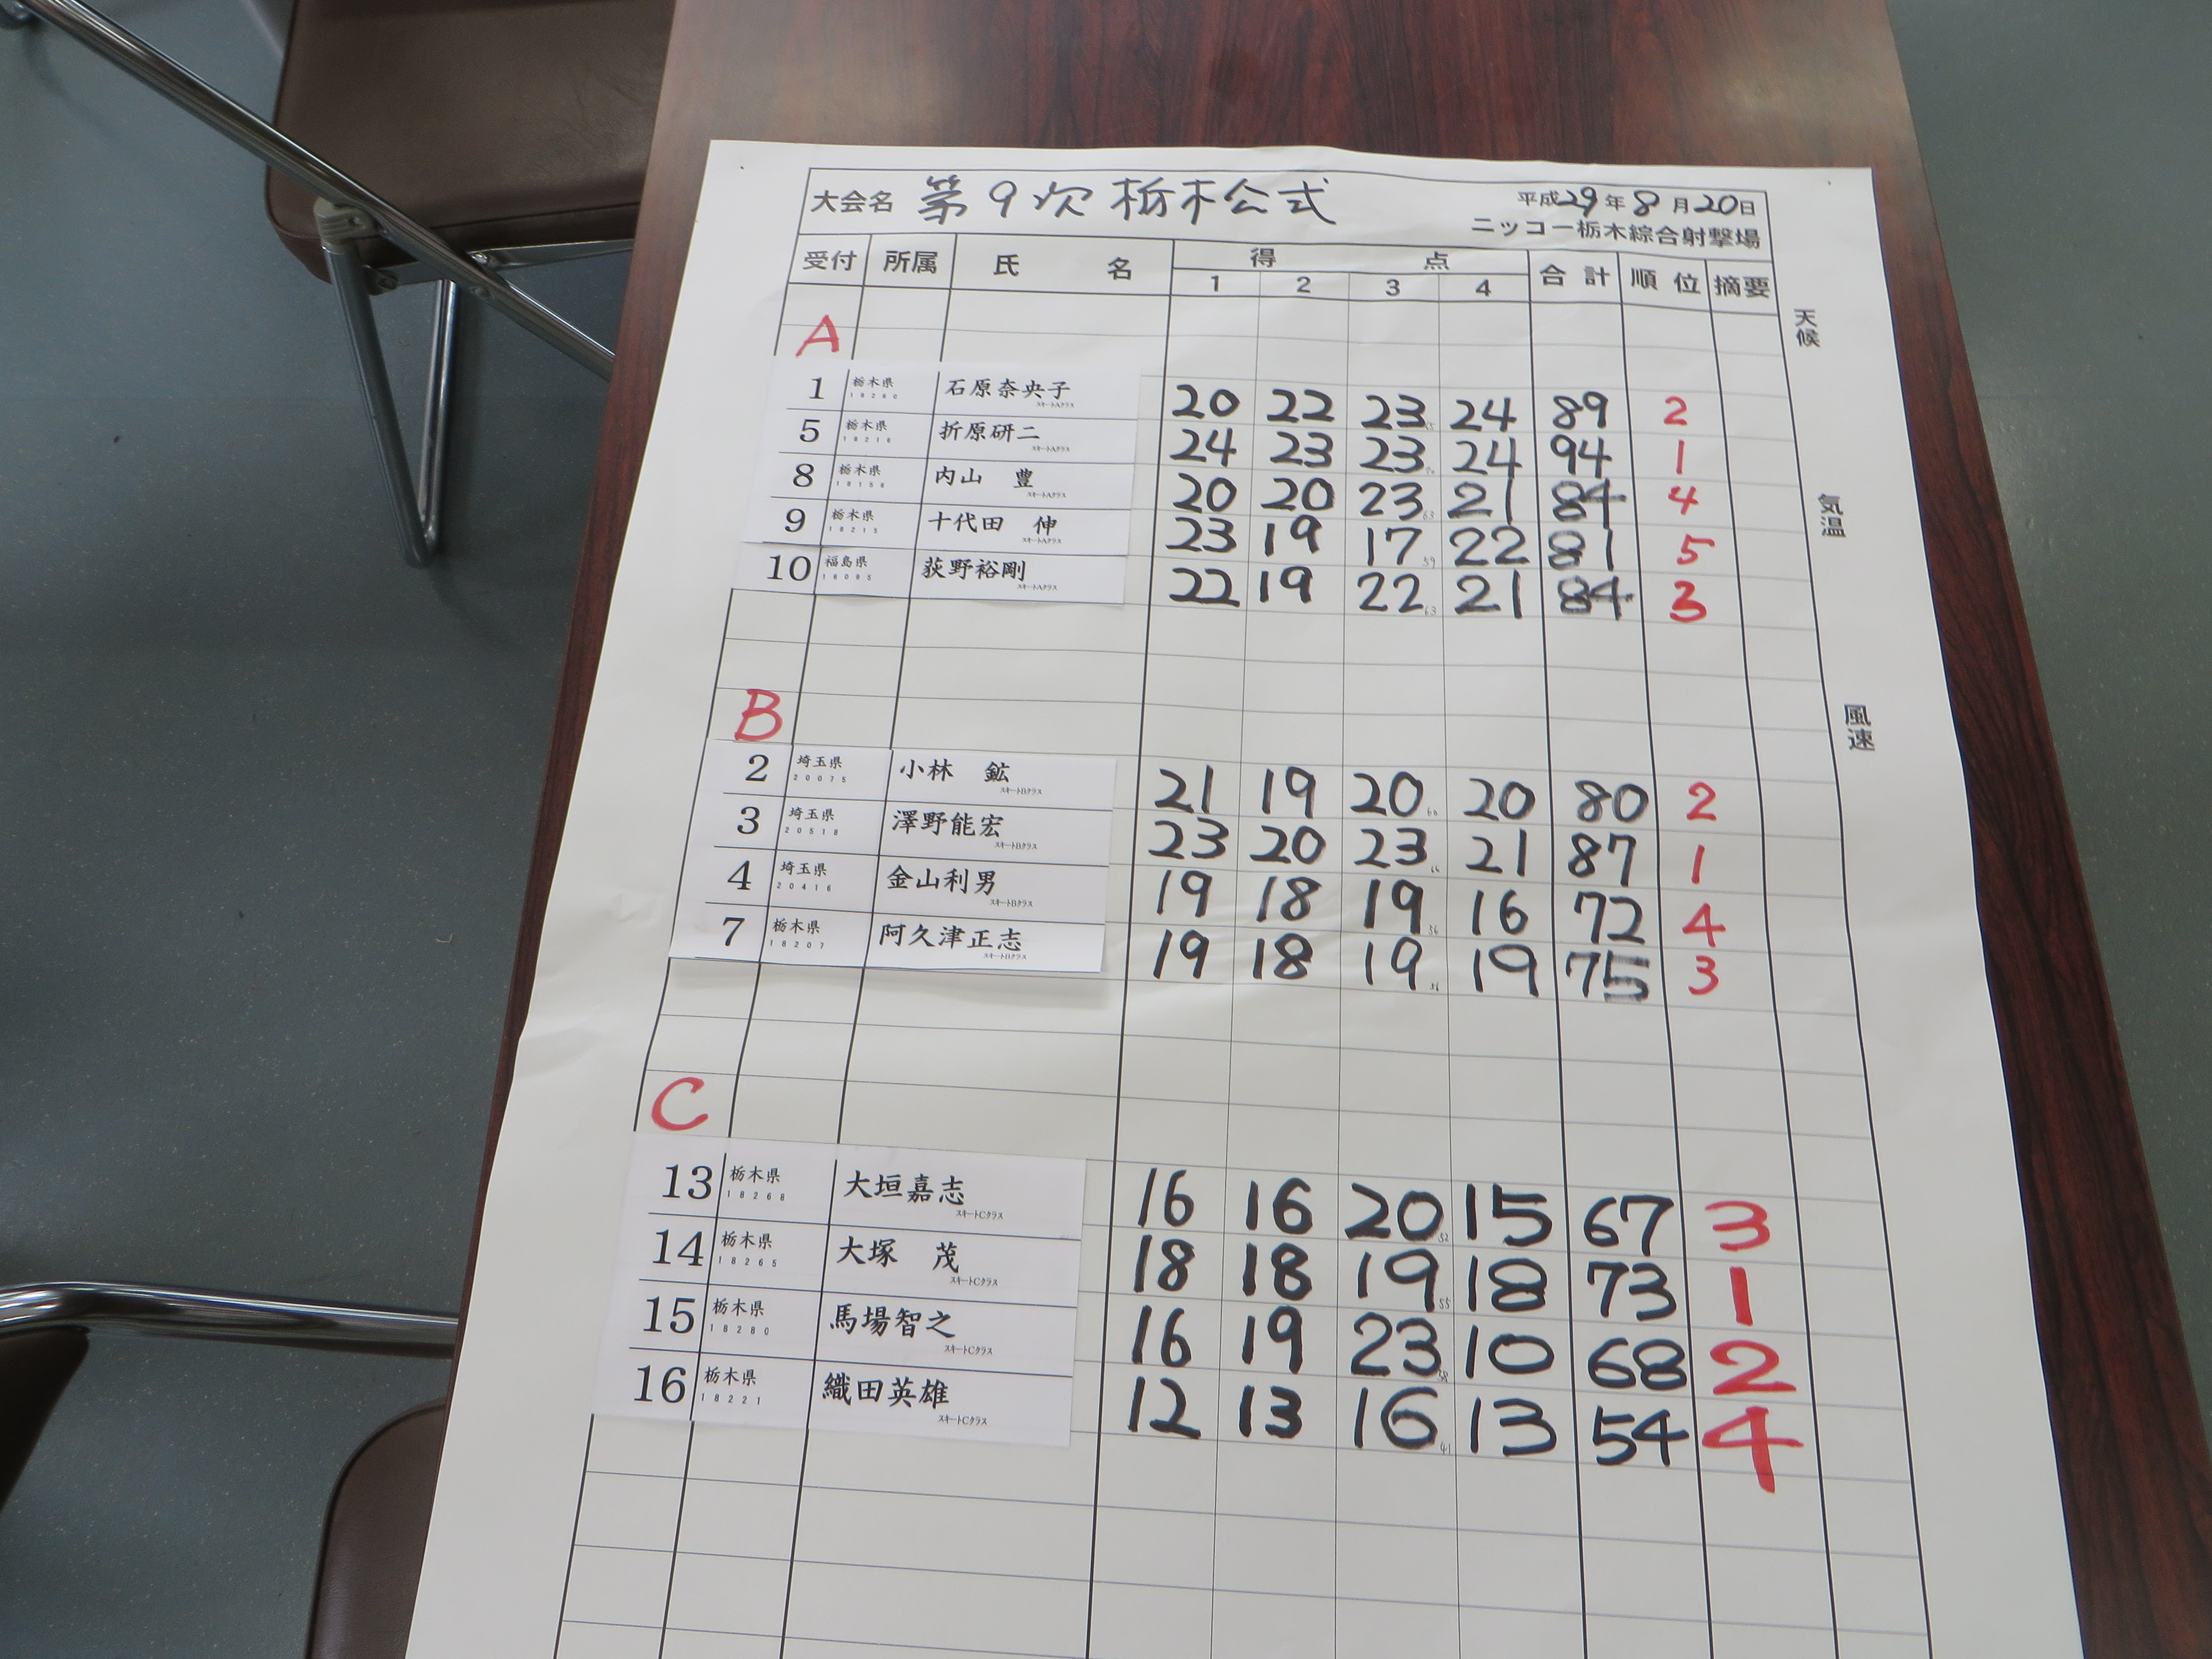 大会名 第9次栃木公式 平成29年8月20日
ニッコー栃木綜合射撃場
受付 所属 氏名 得点 合計 順位 摘要
1 2 3 4
天候
気温
風速
A
1 栃木県 石原奈央子 20 22 23 24 89 2
18280 スキートAクラス
5 栃木県 折原研二 24 23 23 24 94 1
18216 スキートAクラス
8 栃木県 内山 豊 20 20 23 21 84 4
18158 スキートAクラス 63
9 栃木県 十代田 伸 23 19 17 22 81 5
18215 スキートAクラス 59
10 福島県 荻野裕剛 22 19 22 21 84 3
16085 スキートAクラス 63
B
2 埼玉県 小林 鉱 21 19 20 20 80 2
20075 スキートBクラス 60
3 埼玉県 澤野能宏 23 20 23 21 87 1
20518 スキートBクラス
4 埼玉県 金山利男 19 18 19 16 72 4
20416 スキートBクラス 56
7 栃木県 阿久津正志 19 18 19 19 75 3
18207 スキートBクラス 56
C
13 栃木県 大垣嘉志 16 16 20 15 67 3
18268 スキートCクラス 52
14 栃木県 大塚 茂 18 18 19 18 73 1
18265 スキートCクラス 55
15 栃木県 馬場智之 16 19 23 10 68 2
18280 スキートCクラス 58
16 栃木県 織田英雄 12 13 16 13 54 4
18221 スキートCクラス 41